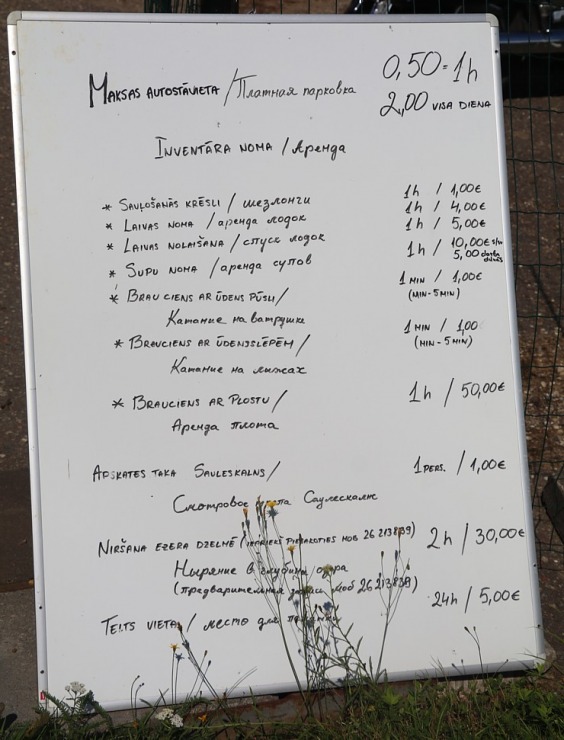 MAKSAS AUTOSTĀVIETA / Платная парковка 0,50 = 1h
2,00 VISA DIENA
INVENTĀRA NOMA / Аренда
* SAUĻOŠANĀS KRĒSLI / шезлонги 1h / 1,00€
* LAIVAS NOMA / аренда лодок 1h / 4,00€
* LAIVAS NOLAIŠANA / спуск лодок 1h / 5,00€
* SUPU NOMA / аренда супов 1h / 10,00€
5,00
* BRAUCIENS AR ŪDENS PŪSLI / 1 MIN / 1,00€
Катание на ватрушке (MIN-5MIN)
* BRAUCIENS AR ŪDENSSLĒPĒM / 1 MIN / 1,00
Катание на лыжах (MIN-5MIN)
* BRAUCIENS AR PLOSTU / 1h / 50,00€
Аренда плота
APSKATES TAKA SAULESKALNS / 1 PERS. / 1,00€
Смотровое Саулескалнс
NIRŠANA EZERA DZELMĒ ( MOB 26 213839) 2h / 30,00€
Ныряние в глубины озера
(предварительная моб 26 213839)
TELTS VIETA / место для 24h / 5,00€